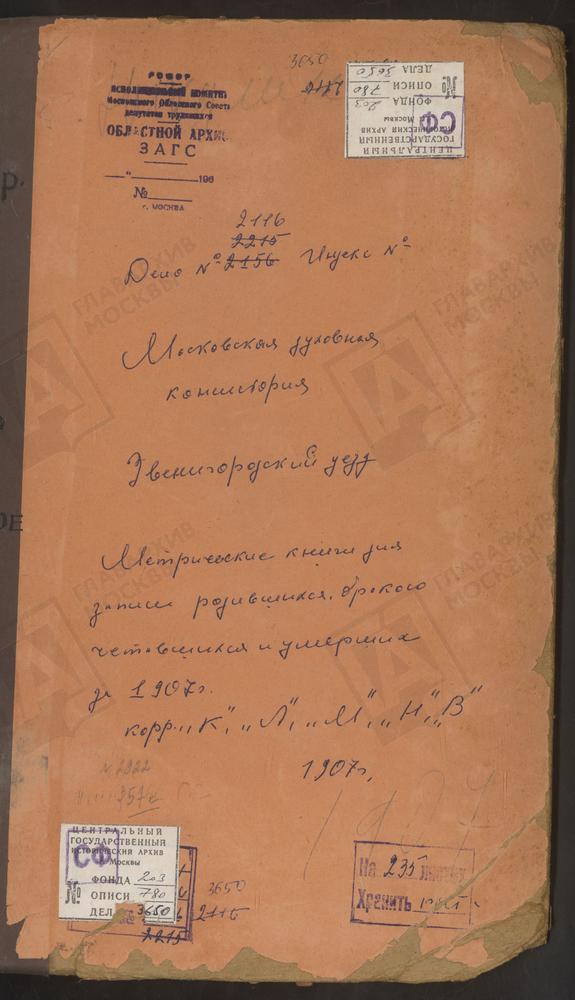 3650
2116
РСФСР
ИСПОЛНИТЕЛЬНЫЙ КОМИТЕТ
Московского Областного Совета
депутатов трудящихся
ОБЛАСТНОЙ АРХИВ
ЗАГС
„ “ 196
№
г. МОСКВА
ЦЕНТРАЛЬНЫЙ
ГОСУДАРСТВЕННЫЙ
ИСТОРИЧЕСКИЙ АРХИВ
г. Москвы
СФ
ФОНДА 203
№ ОПИСИ 780
ДЕЛА 3650
2116
2215
Дело № 2156 Индекс №
Московская духовная
консистория
Звенигородский уезд
Метрические книги для
записи родившихся, брако
четавшихся и умерших
за 1907г.
корр. „К", „Л", „М", „Н", „В"
1907г.
N 2922
1907
ЦЕНТРАЛЬНЫЙ
ГОСУДАРСТВЕННЫЙ
ИСТОРИЧЕСКИЙ АРХИВ
г. Москвы
СФ
ФОНДА 203
№ ОПИСИ 780
ДЕЛА 3650
3650
2116
2215
На 235 листах
Хранить пост.
ГЛАВАРХИВ
МОСКВЫ
ГЛАВАРХИВ
МОСКВЫ
ГЛАВАРХИВ
МОСКВЫ
ГЛАВАРХИВ
МОСКВЫ